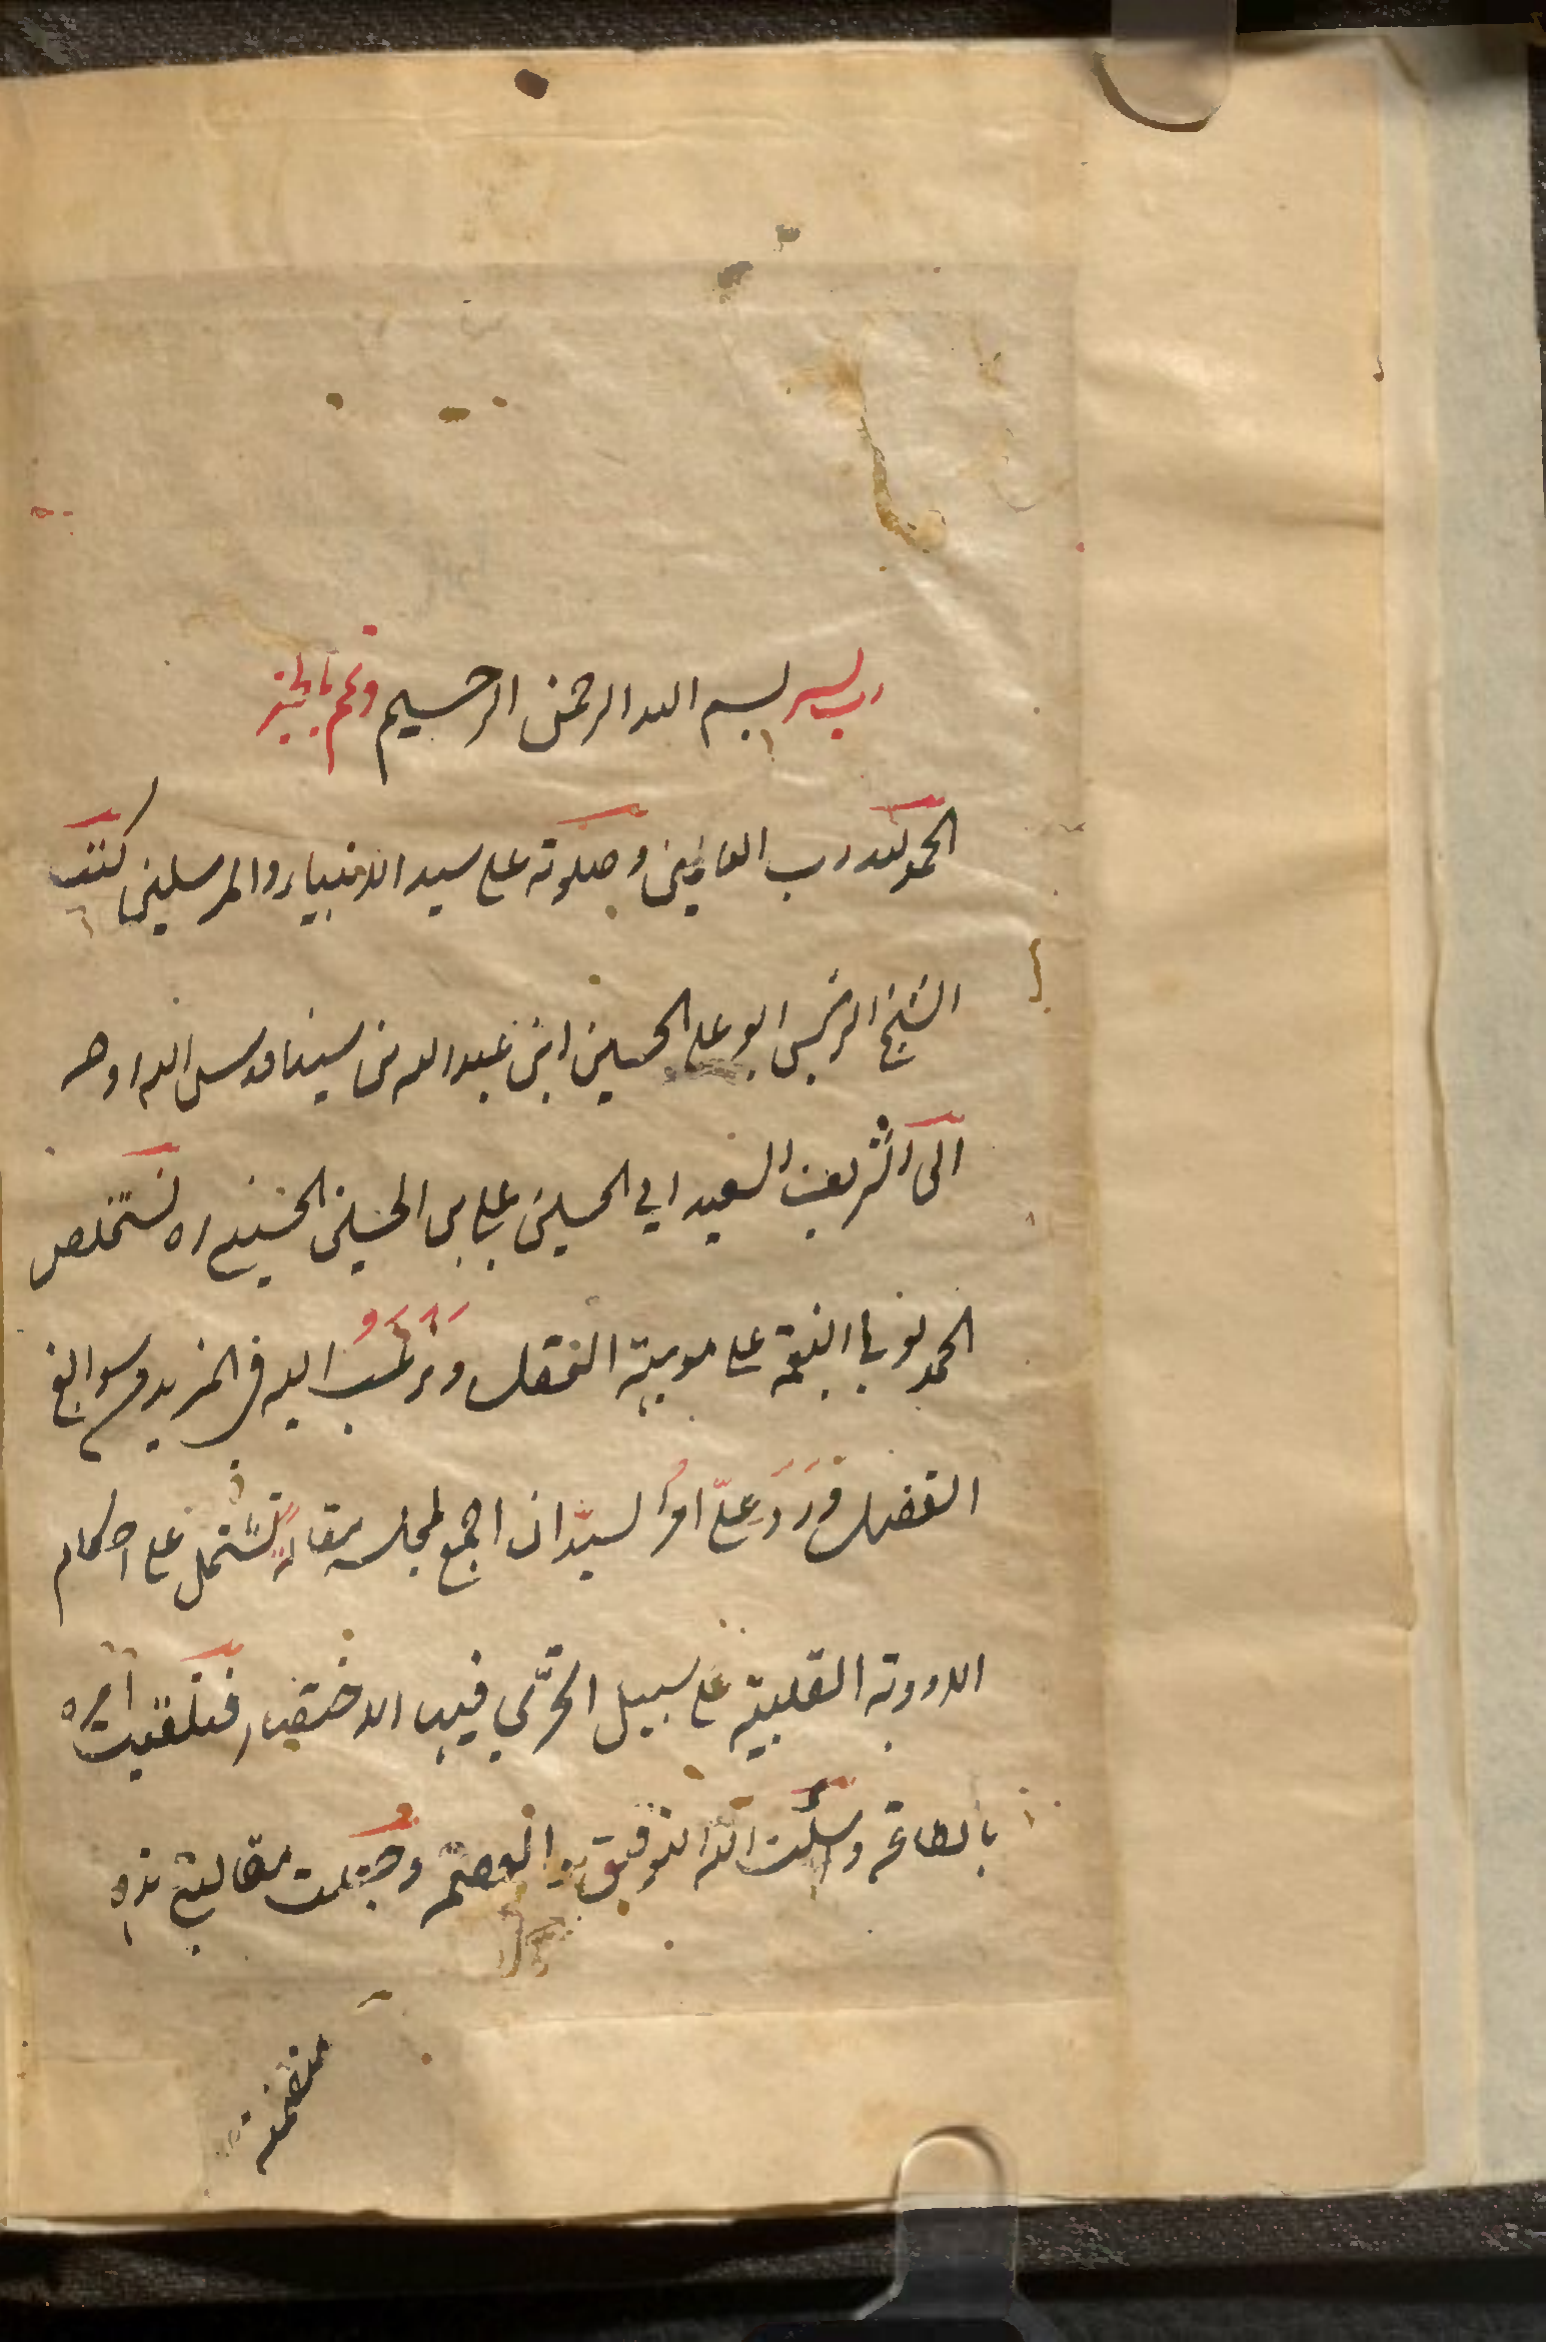 رب يسر بسم الله الرحمن الرحيم وتمم بالخير
الحمد لله رب العالمين وصلوته على سيد الانبياء والمرسلين كتب
الشيخ الرئيس ابو علي الحسين ابن عبد الله بن سينا قدس الله روحه
الى الشريف السعيد ابي الحسين علي بن الحسين الحسيني نستخلص
الحمد لوني النعمة على موهبة العقل ونرغب اليه في المزيد وسوابغ
الفضل ورد علي امر السيد ان اجمع لمجلسه مقالة تشتمل على احكام
الادوية القلبية على سبيل التحري فيها الاختصار فتلقيت امره
بالطاعة وسئلت الله التوفيق والعصمة وجعلت مقالتي هذه